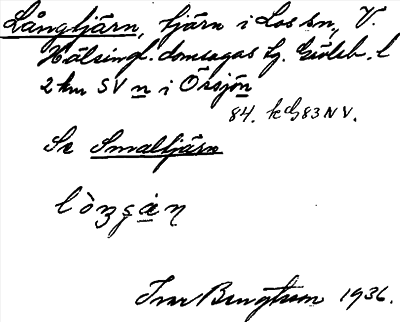 Långtjärn, tjärn i Los sn, V.
Hälsingl. domsagas tg. Gävleb. l
2 km SV n i Örsjön
84. kg 83 NV.
Se Smaltjärn
Ivar Bengtsson 1936.